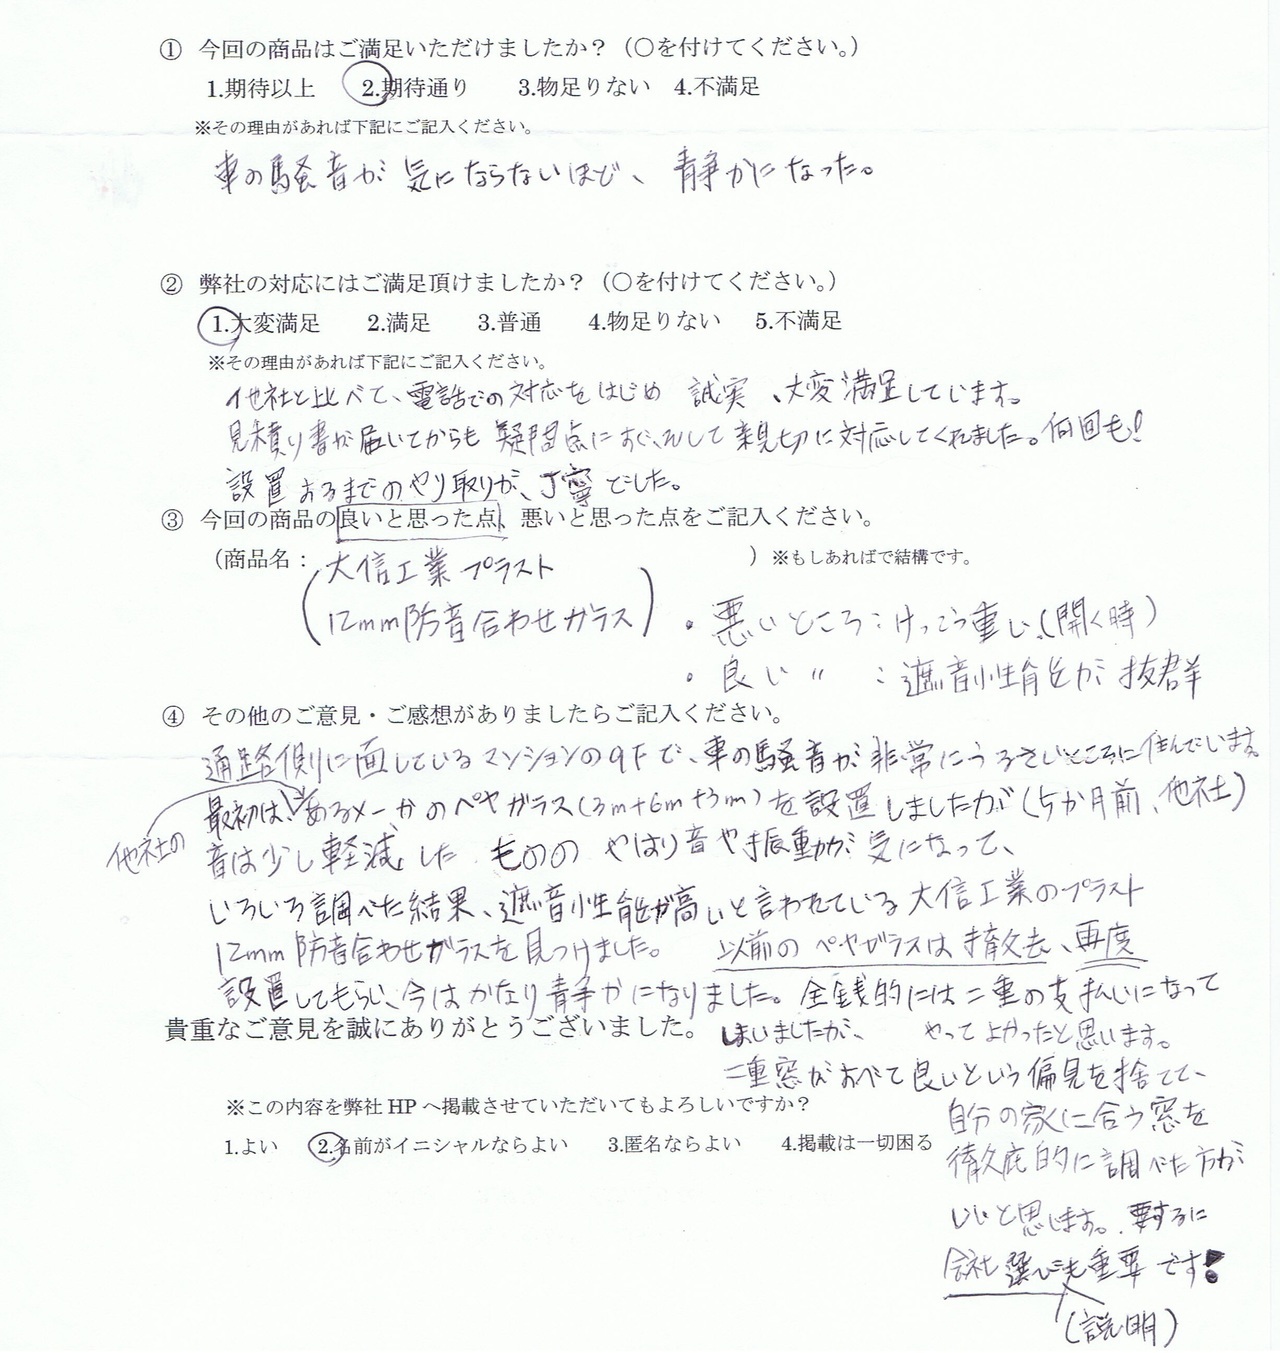 ① 今回の商品はご満足いただけましたか？（○を付けてください。）
1.期待以上 2.期待通り 3.物足りない 4.不満足
※その理由があれば下記にご記入ください。
車の騒音が気にならないほど、静かになった。
② 弊社の対応にはご満足頂けましたか？（○を付けてください。）
1.大変満足 2.満足 3.普通 4.物足りない 5.不満足
※その理由があれば下記にご記入ください。
他社と比べて、電話での対応をはじめ 誠実、大変満足しています。
見積り書が届いてからも疑問点に対して親切に対応してくれました。何回も!
設置するまでのやり取りが、丁寧でした。
③ 今回の商品の良いと思った点、悪いと思った点をご記入ください。
（商品名： 大信工業 プラスト ）※もしあればで結構です。
12mm防音合わせガラス
・悪いところ：けっこう重い（開く時）
・良い 〃 ：遮音性能が抜群
④ その他のご意見・ご感想がありましたらご記入ください。
通路側に面しているマンションの9Fで、車の騒音が非常にうるさいところに住んでいます。
最初は、あるメーカのペヤガラス（3m+6m+3m）を設置しましたが（5か月前、他社）
他社の
音は少し軽減したもののやはり音や振動が気になって、
いろいろ調べた結果、遮音性能が高いと言われている大信工業のプラスト
12mm防音合わせガラスを見つけました。以前のペヤガラスは撤去、再度
設置してもらい、今はかなり静かになりました。金銭的には二重の支払いになって
貴重なご意見を誠にありがとうございました。
しまいましたが、やってよかったと思います。
二重窓がすべて良いという偏見を捨てて、
※この内容を弊社 HP へ掲載させていただいてもよろしいですか？
自分の家に合う窓を
1.よい 2.名前がイニシャルならよい 3.匿名ならよい 4.掲載は一切困る
徹底的に調べた方が
いいと思います。要するに
会社選びも重要です!
（説明）